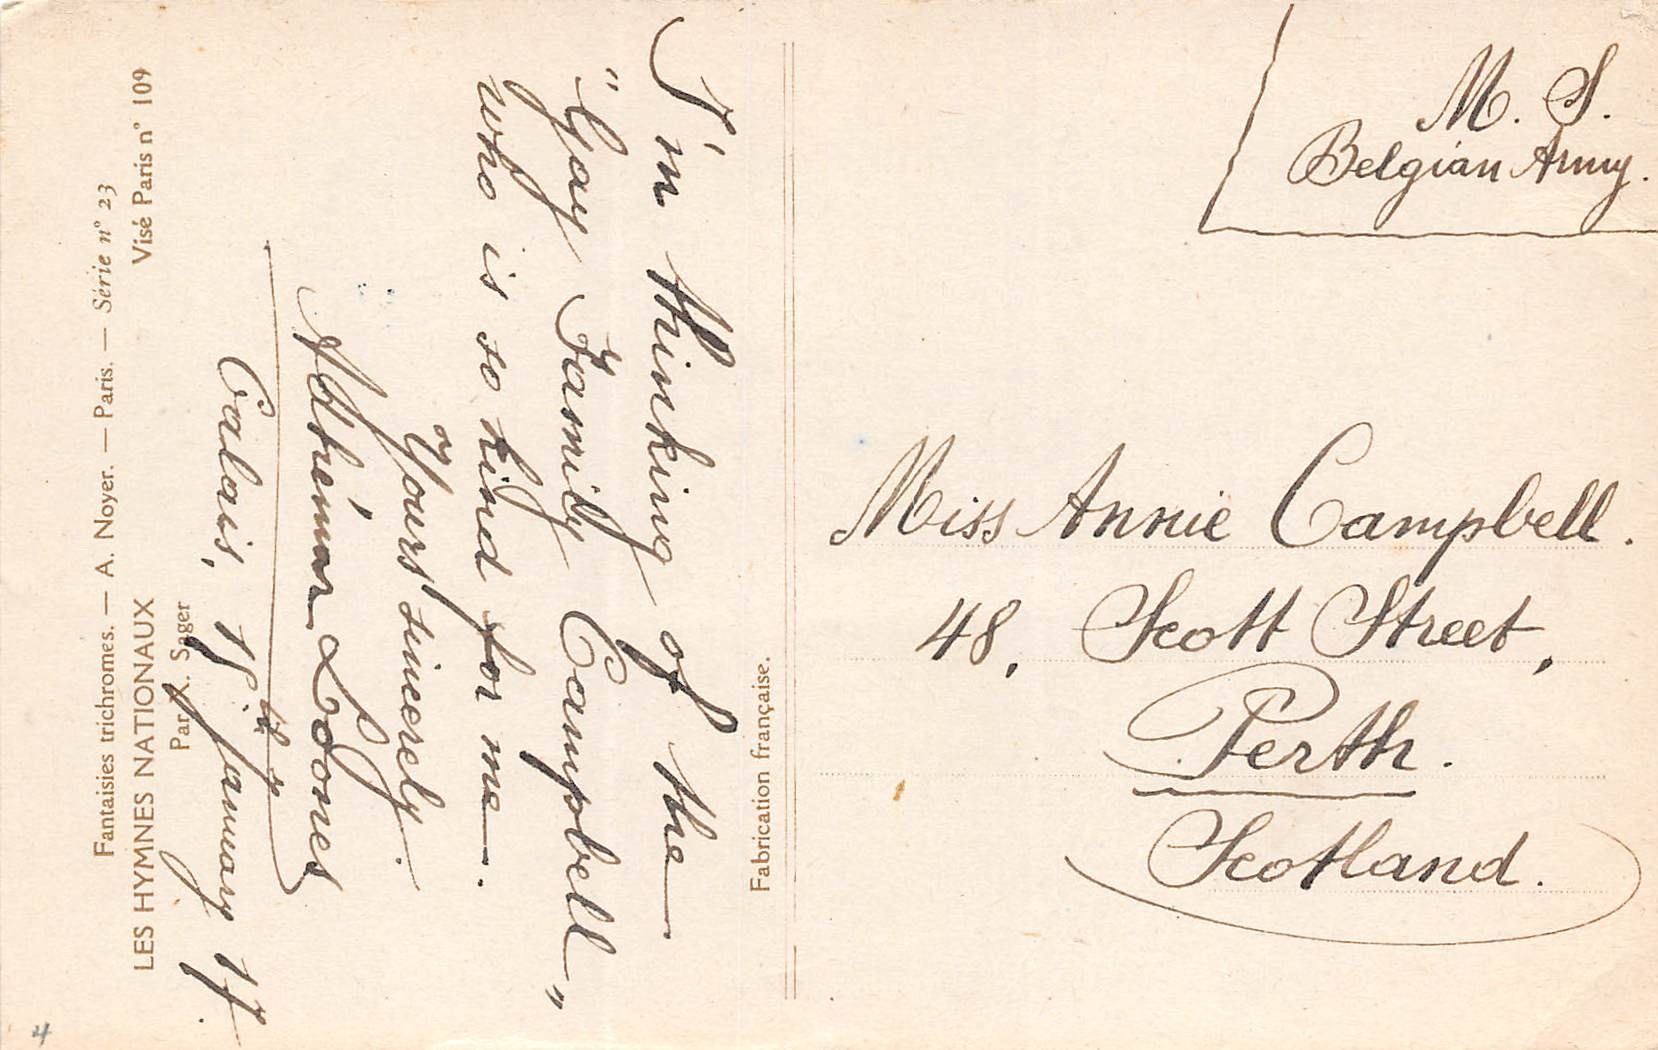 Fantaisies trichromes. — A. Noyer. — Paris. — Série n° 23
LES HYMNES NATIONAUX
Visé Paris n° 109
Par X. Sager
Calais, 15th January 17.
I'm thinking of the
"Gay Family Campbell"
who is so kind for me.
Yours sincerely.
Fabrication française.
M. S.
Belgian Army.
Miss Annie Campbell.
48, Scott Street,
Perth.
Scotland.
4